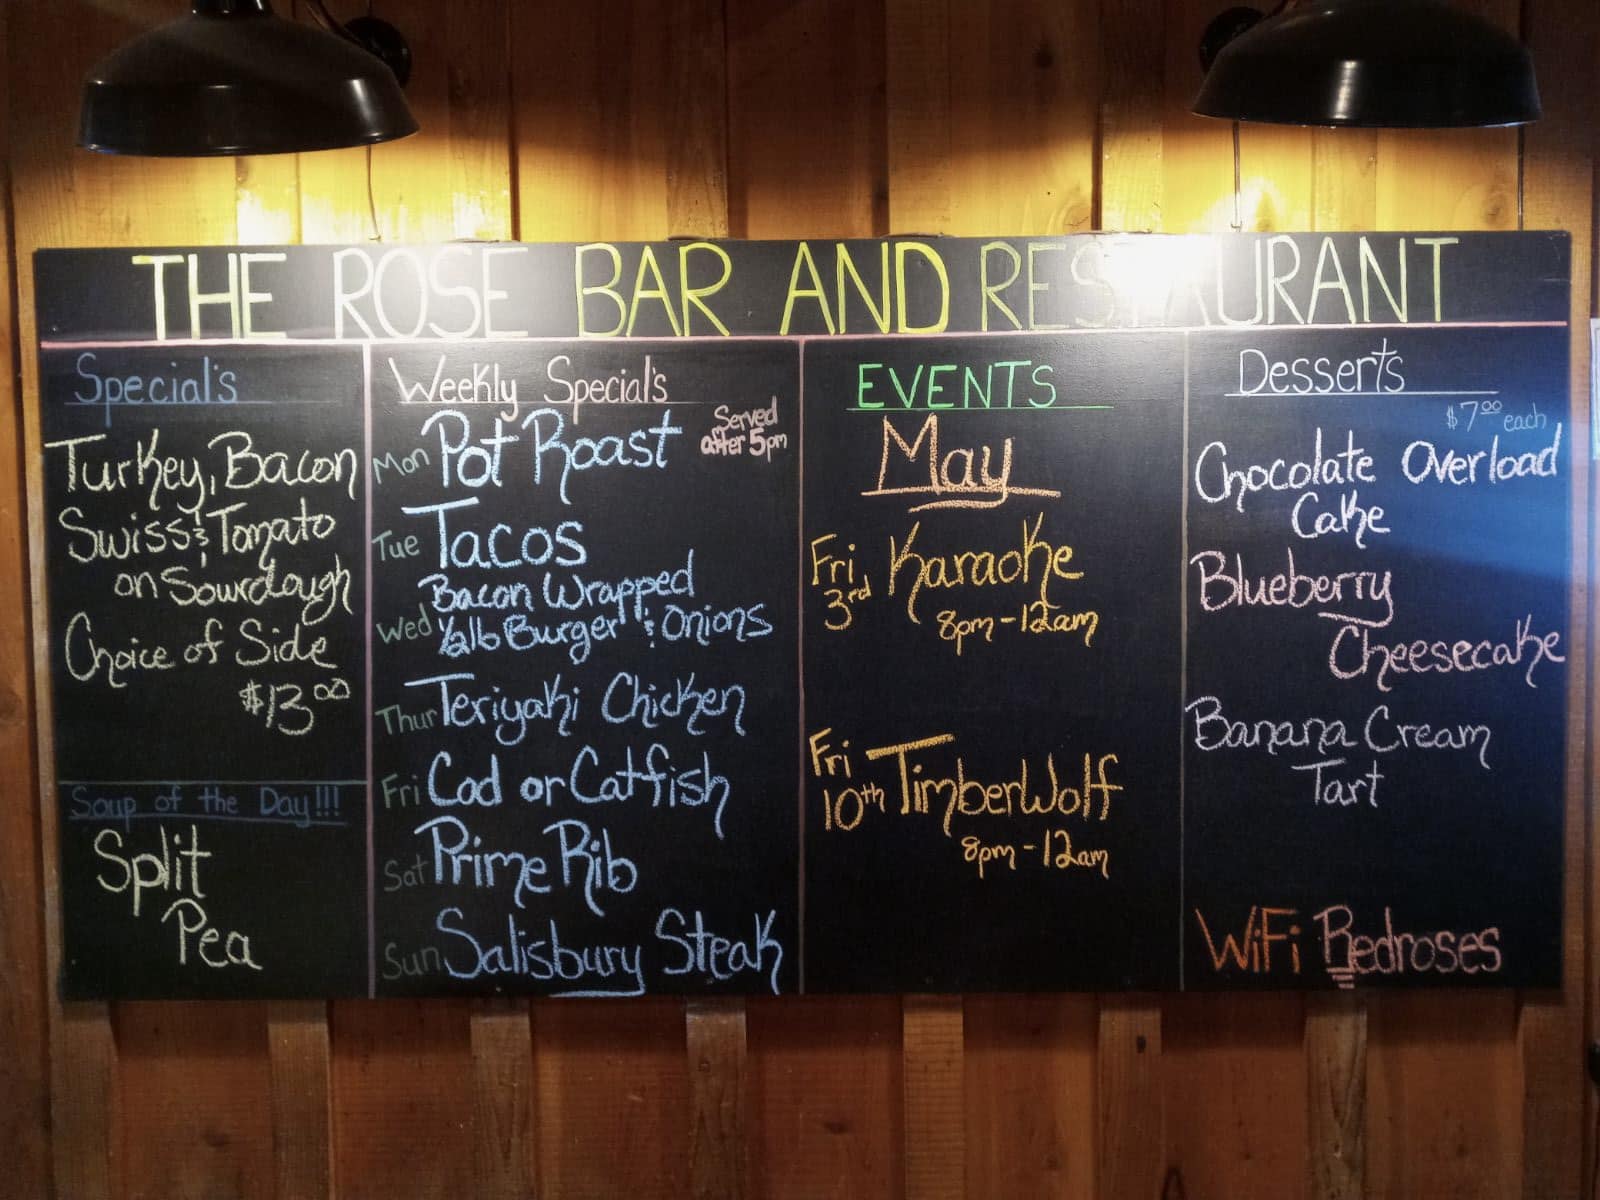 THE ROSE BAR AND RESTAURANT
Special's
Turkey, Bacon
Swiss & Tomato
on Sourdough
Choice of Side
$13.00
Soup of the Day!!!
Split
Pea
Weekly Special's
Served
after 5pm
Mon Pot Roast
Tue Tacos
Bacon Wrapped
Wed 1/2lb Burger & Onions
Thur Teriyaki Chicken
Fri Cod or Catfish
Sat Prime Rib
Sun Salisbury Steak
EVENTS
May
Fri Karaoke
3rd
8pm-12am
Fri
10th TimberWolf
8pm-12am
Desserts
$7.00 each
Chocolate Overload
Cake
Blueberry
Cheesecake
Banana Cream
Tart
WiFi Redroses